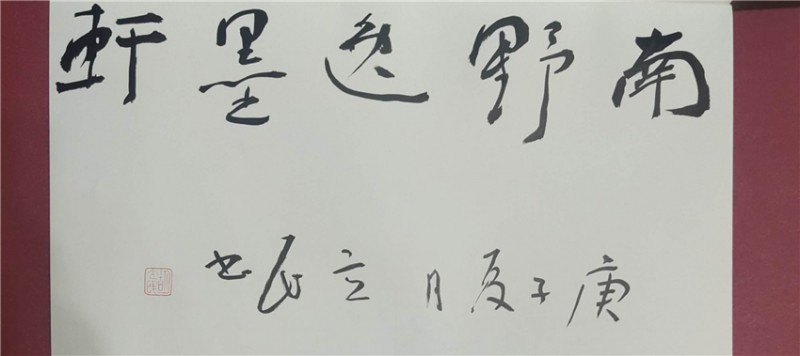 南野逸墨軒
庚子夏月立民书